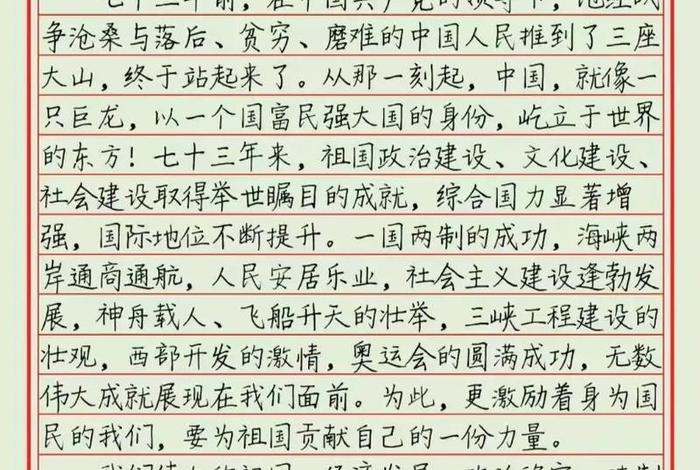 七十三年前，在中国共产党的领导下，饱经战
争沧桑与落后、贫穷、磨难的中国人民推到了三座
大山，终于站起来了。从那一刻起，中国，就像一
只巨龙，以一个国富民强大国的身份，屹立于世界
的东方！七十三年来，祖国政治建设、文化建设、
社会建设取得举世瞩目的成就，综合国力显著增
强，国际地位不断提升。一国两制的成功，海峡两
岸通商通航，人民安居乐业，社会主义建设逢勃发
展，神舟载人、飞船升天的壮举，三峡工程建设的
壮观，西部开发的激情，奥运会的圆满成功，无数
伟大成就展现在我们面前。为此，更激励着身为国
民的我们，要为祖国贡献自己的一份力量。
我们伟大的祖国，经济发展，政治稳定，